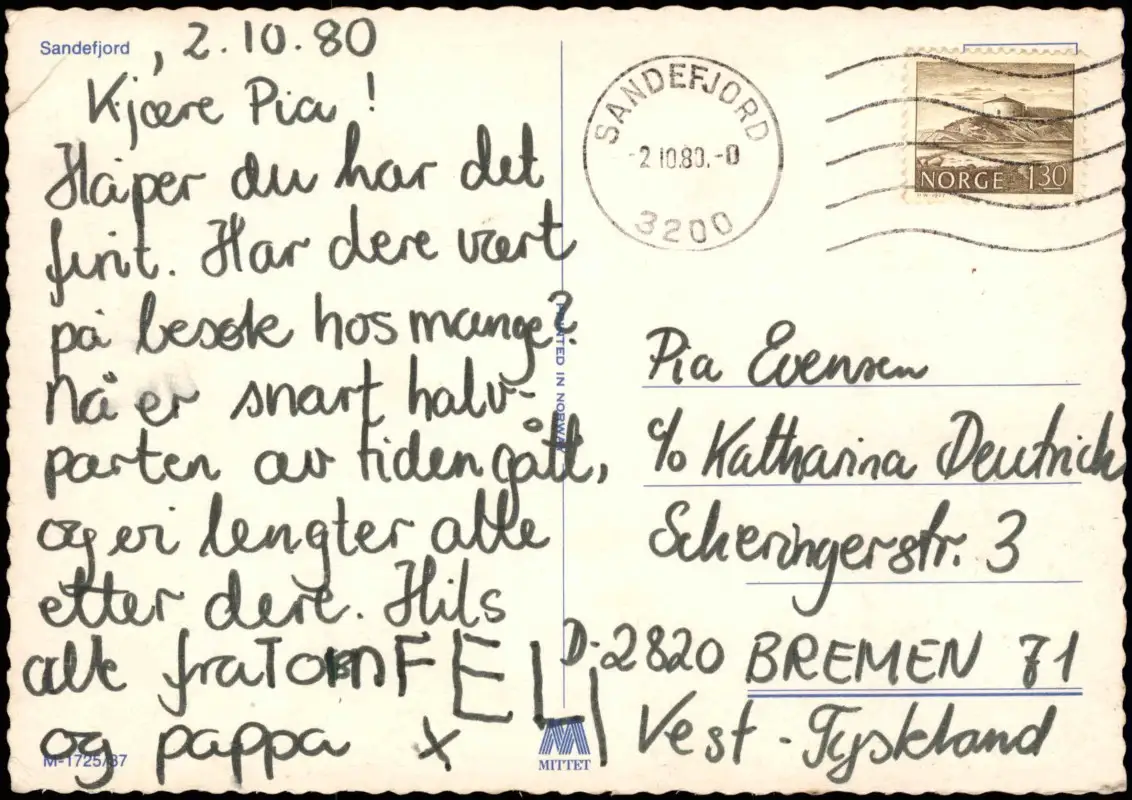 Sandefjord , 2.10.80
Kjære Pia !
Håper du har det
fint. Har dere vært
på besøk hos mange?
Nå er snart halv-
parten av tiden gått,
og vi lengter alle
etter dere. Hils
alle fra Tom FELI
og pappa x
M-1725/37
PRINTED IN NORWAY
MITTET
SANDEFJORD
-2.10.80.-0
3200
NORGE 130
Pia Evensen
c/o Katharina Deutrich
Scheringerstr. 3
D-2820 BREMEN 71
Vest - Tyskland